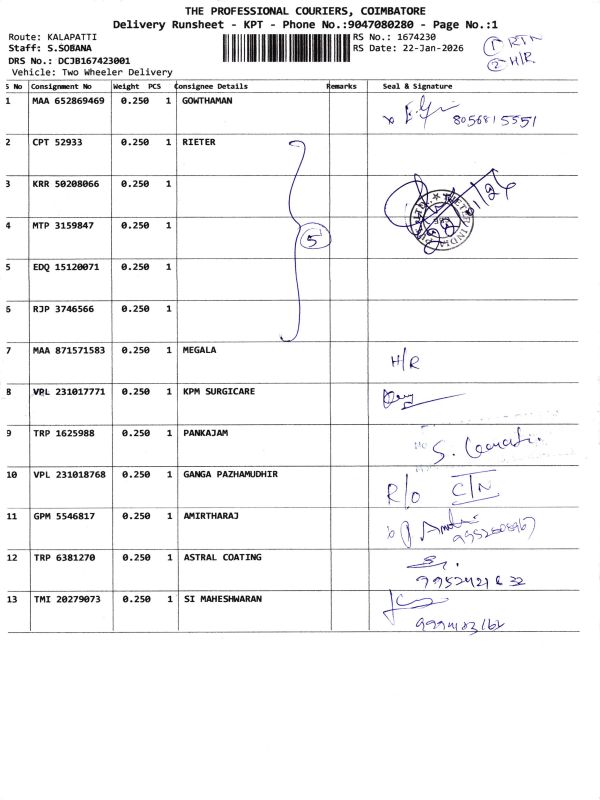 THE PROFESSIONAL COURIERS, COIMBATORE
Delivery Runsheet - KPT - Phone No.:9047080280 - Page No.:1
Route: KALAPATTI
RS No.: 1674230
Staff: S.SOBANA
RS Date: 22-Jan-2026
DRS No.: DCJB167423001
Vehicle: Two Wheeler Delivery
① RTN
② H/R
S No Consignment No Weight PCS Consignee Details Remarks Seal & Signature
1 MAA 652869469 0.250 1 GOWTHAMAN 8056815551
2 CPT 52933 0.250 1 RIETER
3 KRR 50208066 0.250 1
4 MTP 3159847 0.250 1
5
5 EDQ 15120071 0.250 1
6 RJP 3746566 0.250 1
7 MAA 871571583 0.250 1 MEGALA H/R
8 VPL 231017771 0.250 1 KPM SURGICARE
9 TRP 1625988 0.250 1 PANKAJAM S.
10 VPL 231018768 0.250 1 GANGA PAZHAMUDHIR R/O CTN
11 GPM 5546817 0.250 1 AMIRTHARAJ
12 TRP 6381270 0.250 1 ASTRAL COATING
13 TMI 20279073 0.250 1 SI MAHESHWARAN